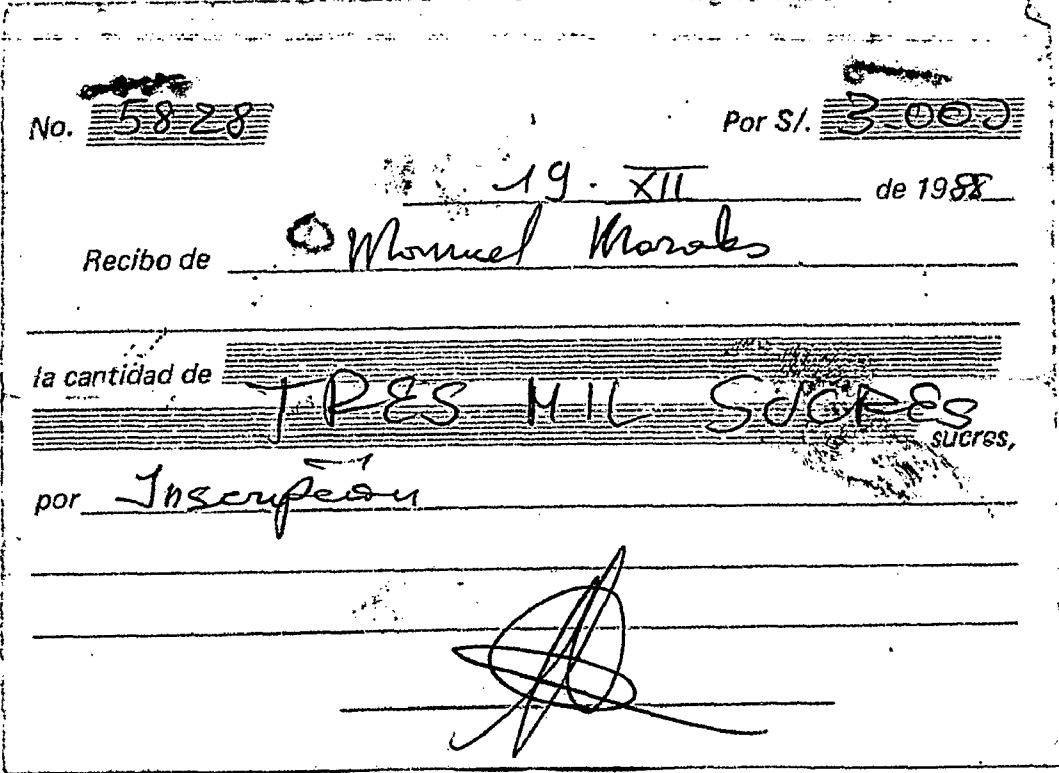 No. 5828 Por S/. 3.000
19. XII de 1988
Recibo de Manuel Morales
la cantidad de
TRES MIL SUCRES
sucres,
por Inscripción